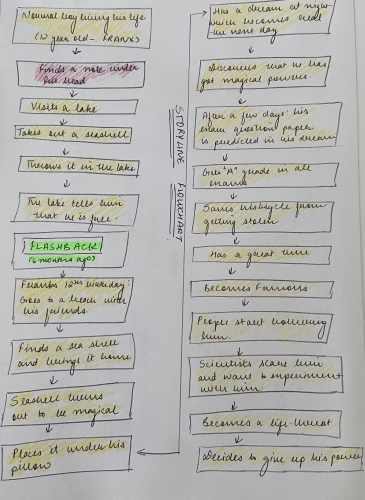 Normal boy living his life
(12 year old - FRANK)
Finds a note under
his bed
Visits a lake
Takes out a seashell
Throws it in the lake
The lake tells him
that he is free.
FLASHBACK
(6 months ago)
Franks 12th birthday:
Goes to a beach with
his friends
Finds a sea shell
and brings it home
Seashell turns
out to be magical
Places it under his
pillow
STORYLINE FLOWCHART
Has a dream at night
which becomes real
the next day
Discovers that he has
got magical powers.
After a few days: his
exam question paper
is predicted in his dream
Gets "A" grade in all
exams
Saves his bicycle from
getting stolen
Has a great time
Becomes Famous
People start honouring
him.
Scientists scare him
and want to experiment
with him.
Becomes a life threat
Decides to give up his power